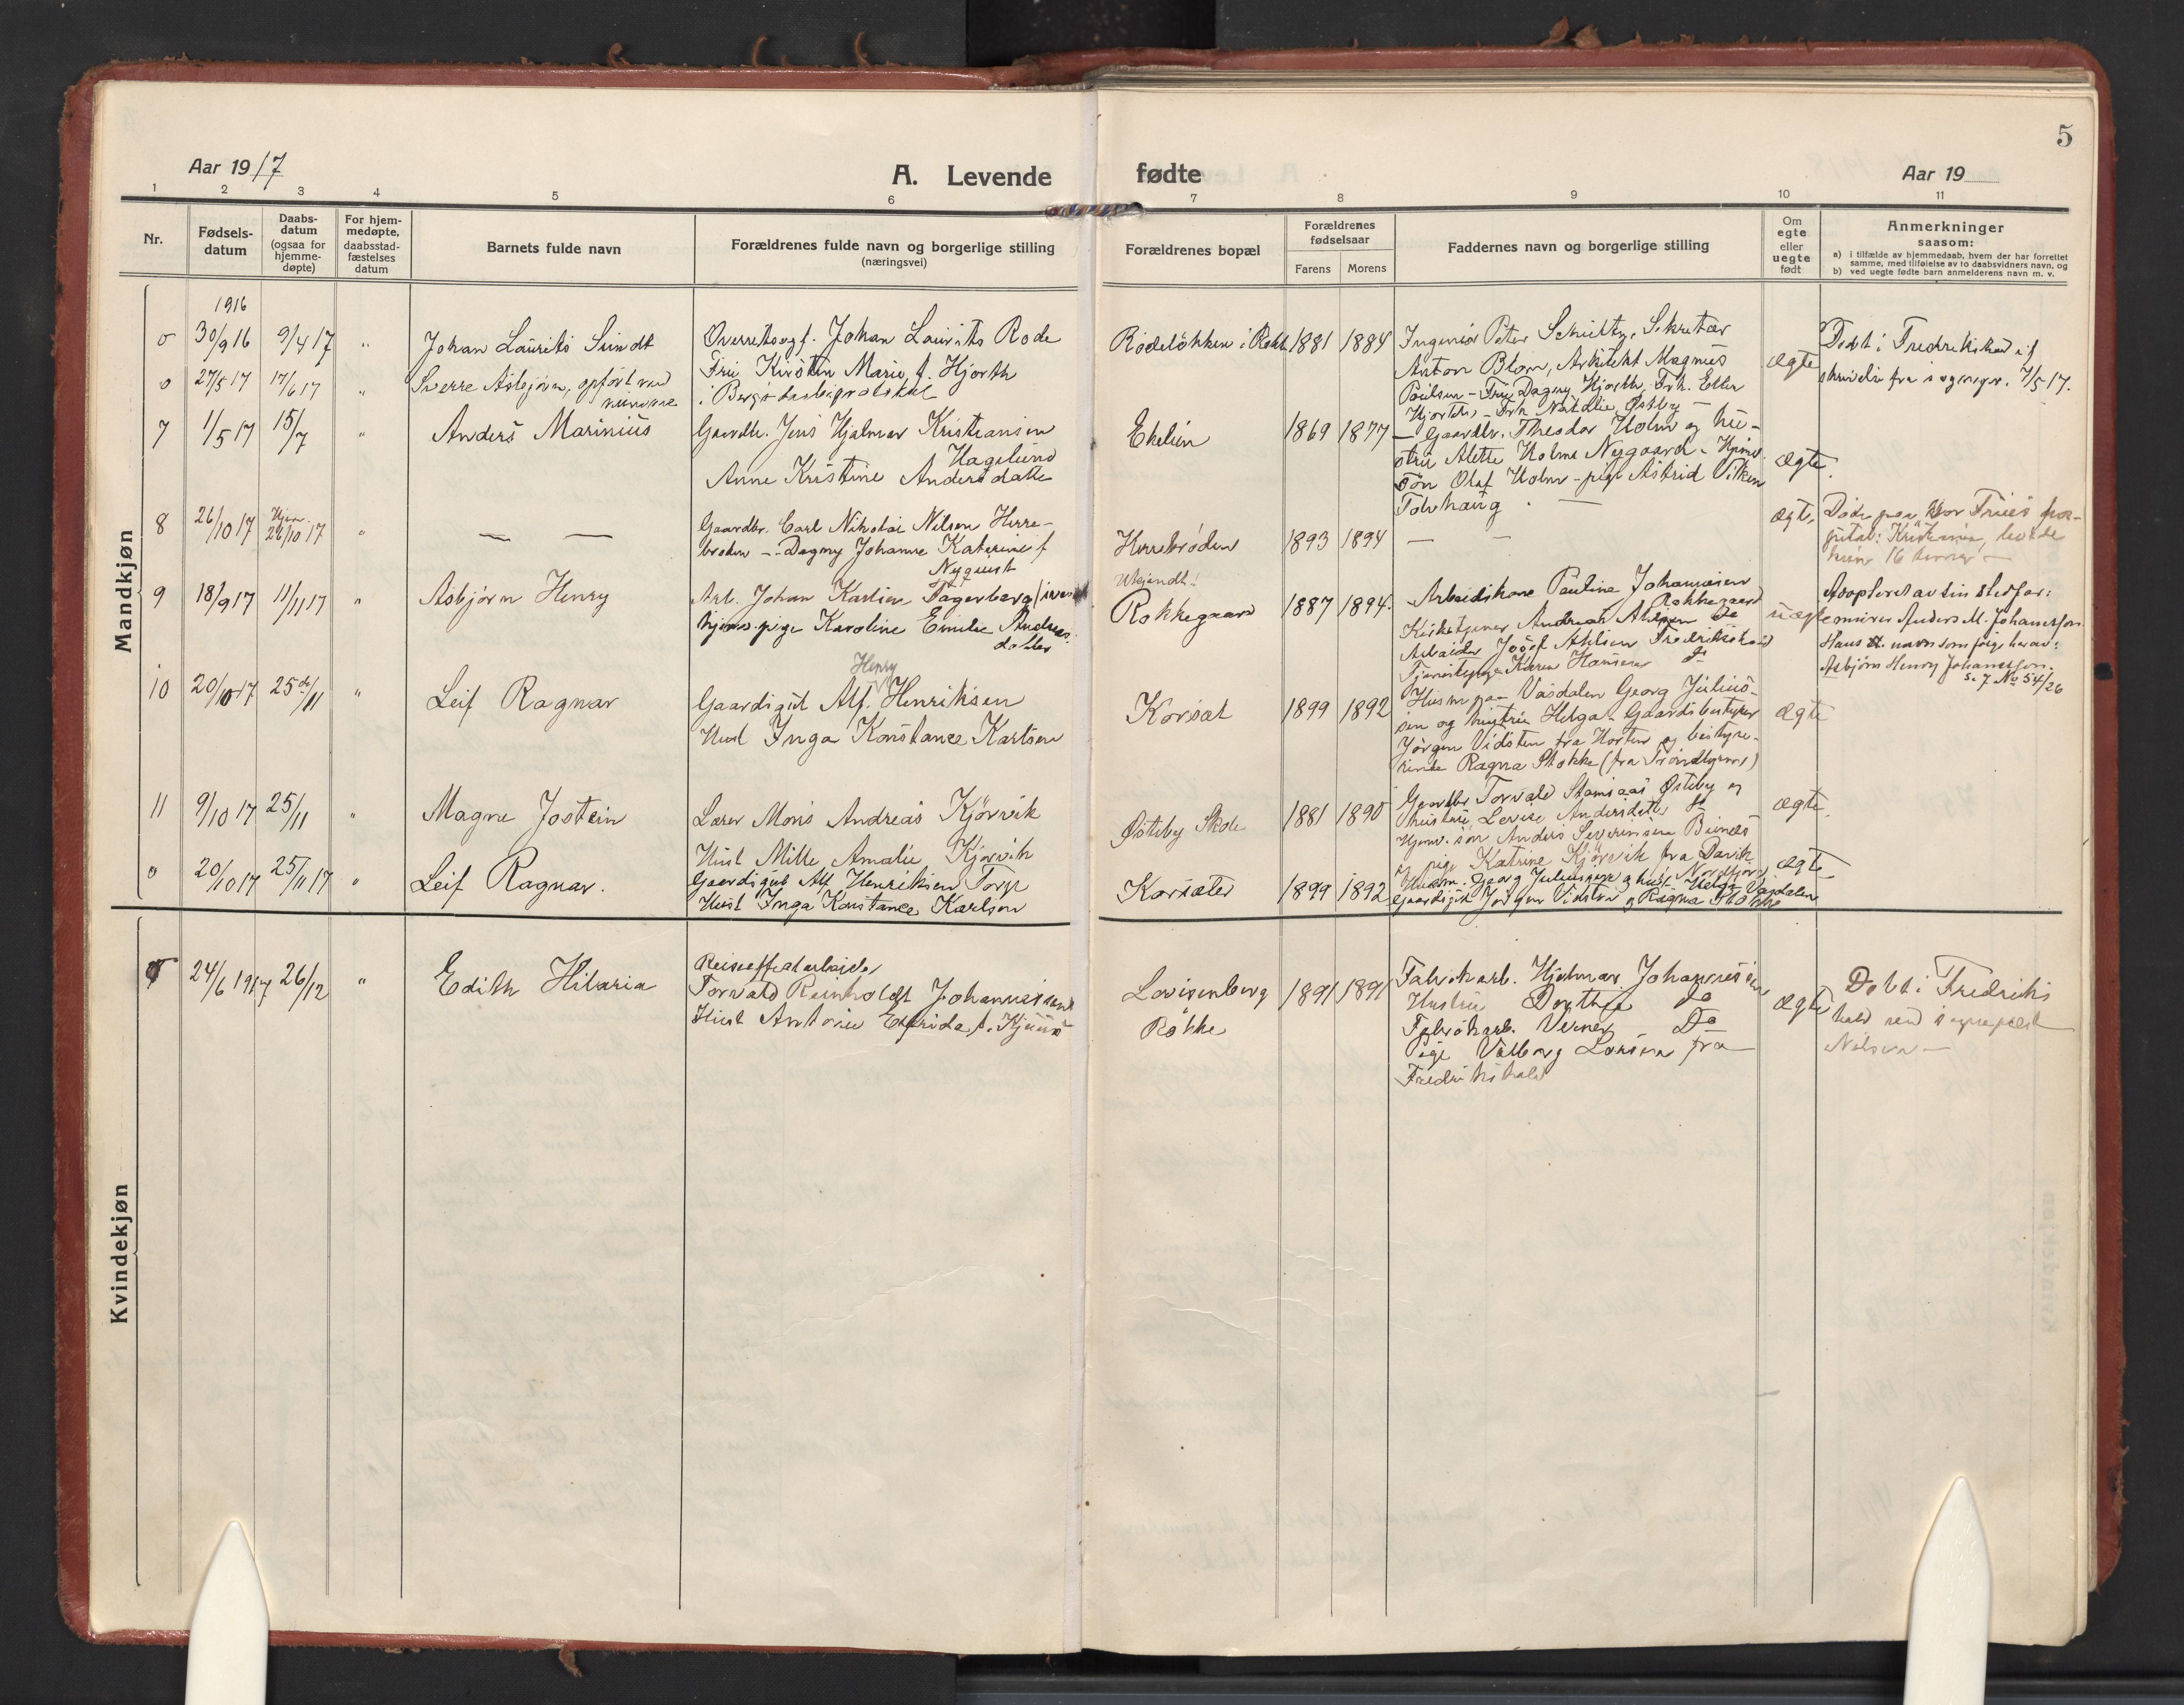 5
Aar 1917
A. Levende fødte
Aar 19
1 2 3 4 5 6 7 8 9 10 11
Nr.
Fødsels-
datum
Daabs-
datum
(ogsaa for
hjemme-
døpte)
For hjem-
medøpte,
daabsstad-
fæstelses
datum
Barnets fulde navn
Forældrenes fulde navn og borgerlige stilling
(næringsvei)
Forældrenes bopæl
Forældrenes
fødselsaar
Farens Morens
Faddernes navn og borgerlige stilling
Om
egte
eller
uegte
født
Anmerkninger
saasom:
a) i tilfælde av hjemmedaab, hvem der har forrettet
samme, med tilføielse av to daabsvidners navn, og
b) ved uegte fødte barn anmelderens navn m. v.
Mandkjøn
1916
0 30/9 16 9/4 17 "
Johan Laurits Sundt
Overretssagf. Johan Laurits Rode
Fru Kirsten Marie f. Hjorth
Rødeløkken i Rokke 1881 1884
Ingeniør Peter Schultz, Sekretær
Anton Blom, Arkitekt Magnus
Poulsen - Fru Dagny Hjorth, Frk. Ellen
Hjorth - Frk Natalie Østby -
ægte
Døbt i Fredrikshald if
skrivelse fra sognepr. 7/5 17.
0 27/5 17 17/6 17 "
Sverre Asbjørn, opført ved
i Bergs daabsprotokol
7 1/5 17 15/7 "
Anders Marinius
Gaardbr. Jens Hjalmar Kristiansen
Hagelund
Anne Kristine Andersdatter
Ekelün 1869 1877
- Gaardbr. Theodor Holm og hu-
stru Alette Holm Nygaard - Hjemv.
Søn Olaf Holm - pige Astrid
Tolvhaug -
ægte.
8 26/10 17 Hjem. 26/10 17 "
— —
Gaardbr. Carl Nikolai Nilsen Herre-
brøden -- Dagny Johanne Katerine f
Nyquist
Herrebrøden 1893 1894
— —
ægte,
Døde paa Vor Frues hos-
pital i Kristiania, levede
kun 16 timer -
9 18/9 17 11/11 17 "
Asbjørn Henry
Arb. Johan Karlsen Fagerberg
hjemv. pige Karoline Emilie Andreas-
datter
Ukjendt!
Rokkegaard 1887 1894.
Arbeidskone Pauline Johansen
Rokkegaard
Kirketjener Andreas Ahlsen Do
Arbeider Josef Ahlsen Fredrikshald
Tjenestepige Karen Hansen do
uægte
Adopteret av sin stedfar:
murer Anders M. Johannessen.
Hans navn som følge herav:
Asbjørn Henry Johannessen.
Se 7 No 54/26
10 20/10 17 25de/11 "
Leif Ragnar
Henry
Gaardsgut Alf. Henriksen
Hust Inga Konstance Karlsen
Korsæt 1899 1892
Husm. paa Vasdalen Georg Julius-
sen og hustru Helga - Gaardsbestyrer
Jörgen Vidsten fra Horten og bestyre-
rinde Ragna Stokke (fra Trondhjem)
ægte
11 9/10 17 25/11 "
Magne Jostein
Lærer Mons Andreas Kjörvik
Hust Mille Amalie Kjörvik
Østeby Skole 1881 1890
Gaardbr Torvald Østeby og
hustru Lovise Andersdatter do
Hjemv. søn Anders Severinsen
og pige Katrine Kjörvik fra Davik
Nordfjord
ægte.
0 20/10 17 25/11 17 "
Leif Ragnar.
Gaardsgut Alf Henriksen Torgr
Hust Inga Konstance Karlsen
Korsæter 1899 1892
Husm. Georg Juliussen og hust. Helga Vasdalen
Gaardsgut Jörgen Vidsten og Ragna Stokke
ægte
Kvindekjøn
0 24/6 1917 26/12 "
Edith Hilaria
Reiseeffektarbeider
Torvald Reinholdt Johannessen
Hust Antonie Elfrida f. Kjuus
Lovisenberg
Rokke
1891 1891
Fabrikarb. Hjalmar Johannessen
Hustru Dorthea do
Fabrikarb. Verner Do
Pige Valborg Larsen fra
Fredrikshald
ægte
Døbt i Fredriks
hald ved sogneprest
Nilsen -